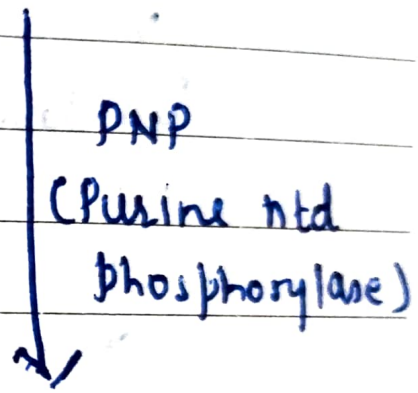 PNP
(Purine ntd
phosphorylase)